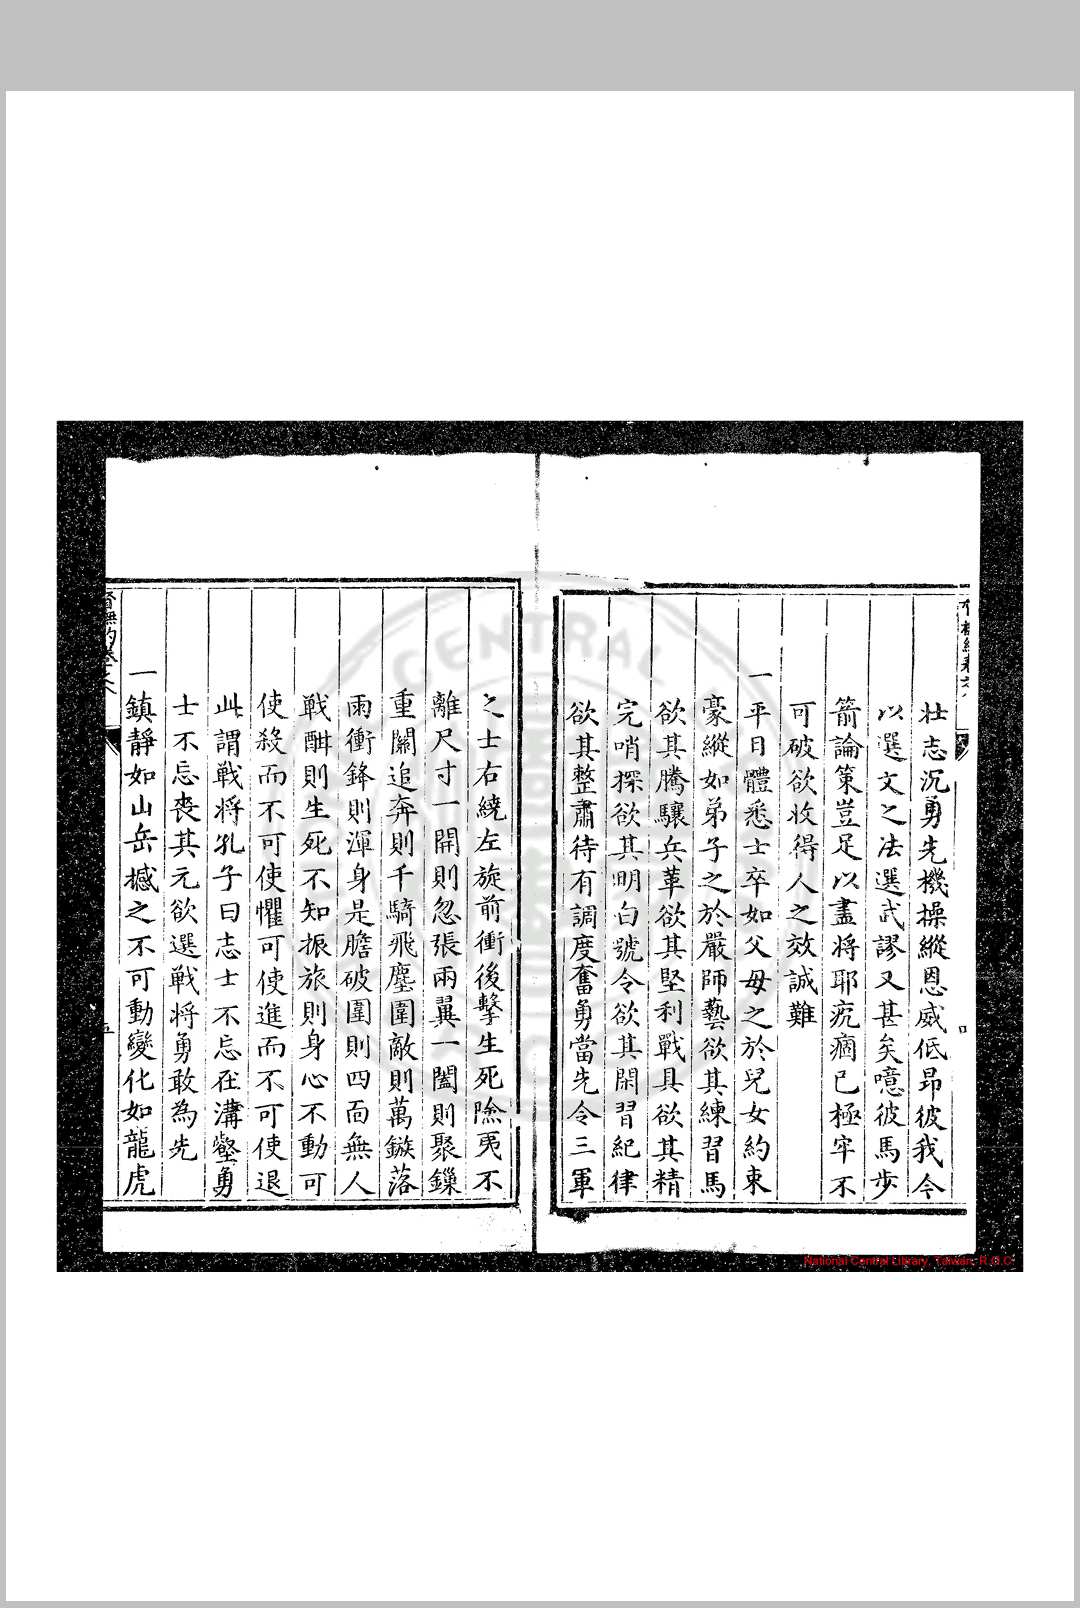 壯志沉勇先機操縱恩威低昂彼我今
以選文之法選武謬又甚矣噫彼馬步
箭論策豈足以盡將耶疣痼已極牢不
可破欲收得人之效誠難
一平日體悉士卒如父母之於兒女約束
豪縱如弟子之於嚴師藝欲其練習馬
欲其騰驤兵革欲其堅利戰具欲其精
完哨探欲其明白號令欲其閑習紀律
欲其整肅待有調度奮勇當先令三軍
之士右繞左旋前衝後擊生死險夷不
離尺寸一開則忽張兩翼一闔則聚鏁
重關追奔則千騎飛塵圍敵則萬鏃落
雨衝鋒則渾身是膽破圍則四面無人
戰酣則生死不知振旅則身心不動可
使殺而不可使懼可使進而不可使退
此謂戰將孔子曰志士不忘在溝壑勇
士不忘喪其元欲選戰將勇敢為先
一鎮靜如山岳撼之不可動變化如龍虎
CENTRAL
National Central Library, Taiwan, R.O.C.